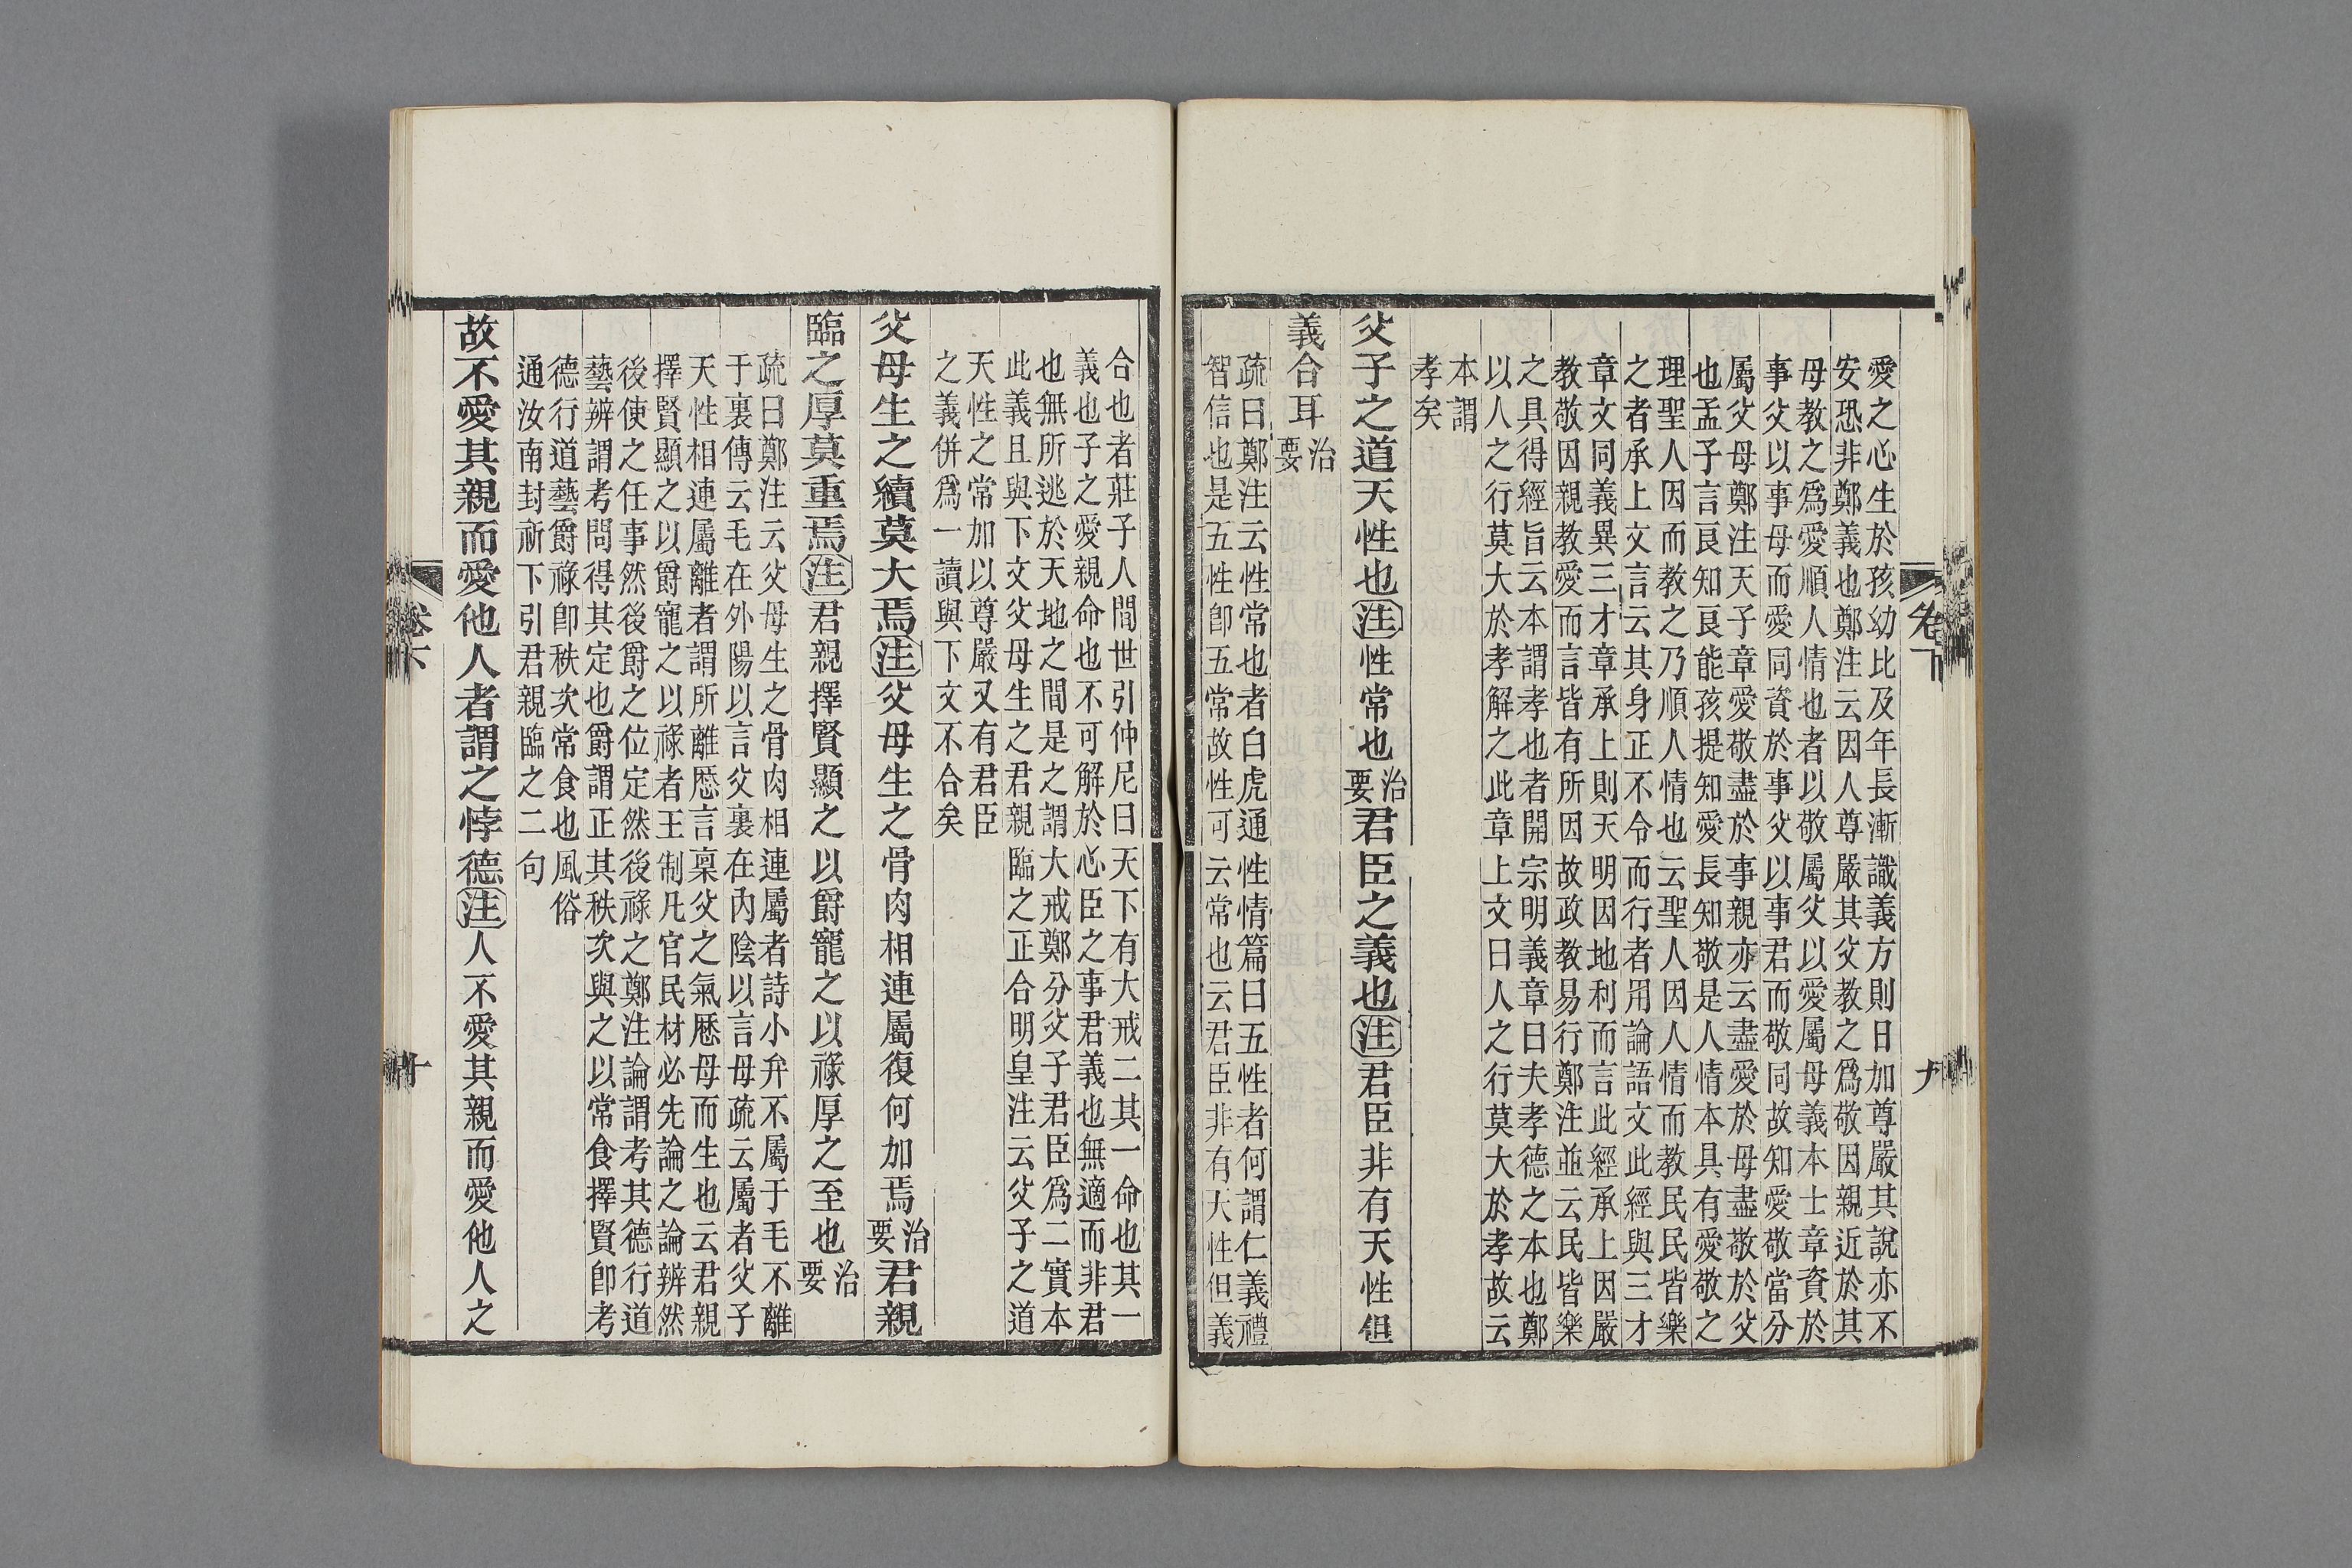 愛之心生於孩幼比及年長漸識義方則日加尊嚴其說亦不
安恐非鄭義也鄭注云因人尊嚴其父教之爲敬因親近於其
母教之爲愛順人情也者以敬屬父以愛屬母義本士章資於
事父以事母而愛同資於事父以事君而敬同故知愛敬當分
屬父母鄭注天子章愛敬盡於事親亦云盡愛於母盡敬於父
也孟子言良知良能孩提知愛長知敬是人情本具有愛敬之
理聖人因而教之乃順人情也云聖人因人情而教民民皆樂
之者承上文言云其身正不令而行者用論語文此經與三才
章文同義異三才章承上則天明因地利而言此經承上因嚴
教敬因親教愛而言皆有所因故政教易行鄭注並云民皆樂
之具得經旨云本謂孝也者開宗明義章曰夫孝德之本也鄭
以人之行莫大於孝解之此章上文曰人之行莫大於孝故云
本謂
孝矣
父子之道天性也注性常也治要君臣之義也注君臣非有天性但
義合耳治要
疏曰鄭注云性常也者白虎通性情篇曰五性者何謂仁義禮
智信也是五性卽五常故性可云常也云君臣非有天性但義
合也者莊子人間世引仲尼曰天下有大戒二其一命也其一
義也子之愛親命也不可解於心臣之事君義也無適而非君
也無所逃於天地之間是之謂大戒鄭分父子君臣爲二實本
此義且與下文父母生之君親臨之正合明皇注云父子之道
天性之常加以尊嚴又有君臣
之義併爲一讀與下文不合矣
父母生之續莫大焉注父母生之骨肉相連屬復何加焉治要君親
臨之厚莫重焉注君親擇賢顯之以爵寵之以祿厚之至也治要
疏曰鄭注云父母生之骨肉相連屬者詩小弁不屬于毛不離
于裏傳云毛在外陽以言父裏在內陰以言母疏云屬者父子
天性相連屬離者謂所離歷言稟父之氣歷母而生也云君親
擇賢顯之以爵寵之以祿者王制凡官民材必先論之論辨然
後使之任事然後爵之位定然後祿之鄭注論謂考其德行道
藝辨謂考問得其定也爵謂正其秩次與之以常食擇賢卽考
德行道藝爵祿卽秩次常食也風俗
通汝南封祈下引君親臨之二句
故不愛其親而愛他人者謂之悖德注人不愛其親而愛他人之
卷下
九
卷下
十